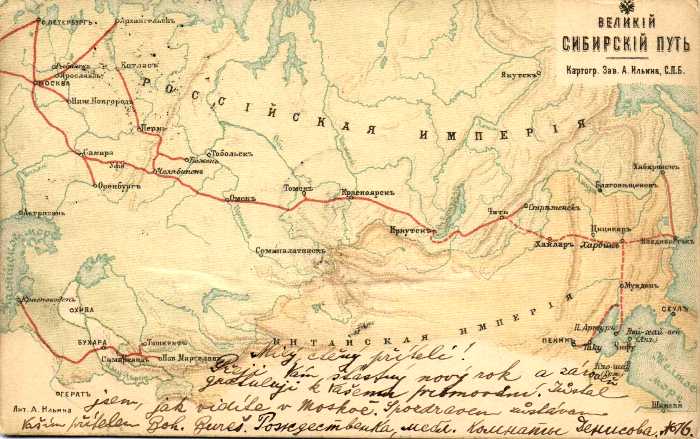 ВЕЛИКІЙ
СИБИРСКІЙ ПУТЬ
Картогр. Зав. А. Ильина, С.П.Б.
С.ПЕТЕРБУРГЪ
Архангельскъ
Якутскъ
Рыбинскъ
Котласъ
Ярославль
МОСКВА
РОССІЙСКАЯ ИМПЕРІЯ
Ниж.Новгородъ
Пермь
Хабаровскъ
Тобольскъ
Самара
Тюмень
Уфа
Челябинскъ
Благовѣщенскъ
Оренбургъ
Омскъ
Томскъ
Красноярскъ
Срѣтенскъ
Чита
Астрахань
Иркутскъ
Цицикаръ
Хайларъ
Харбинъ
Владивостокъ
Семипалатинскъ
Мукденъ
Красноводскъ
ХИВА
СЕУЛЪ
БУХАРА
Ташкентъ
Самаркандъ
Нов. Маргеланъ
КИТАЙСКАЯ ИМПЕРІЯ
П. Артуръ
ПЕКИНЪ
Таку
Чифу
Вей-хай-вей
(Анг.)
ГЕРАТЪ
Шанхай
Лит. А. Ильина
Milý, ctěný příteli!
Přeji Vám šťastný nový rok a zároveň
gratuluji k Vašemu
jsem, jak vidíte v Moskvě. S pozdravem zůstávám
Vaším přítelem Joh. Bureš. Рождественка, мебл. комнаты Денисова, №76.